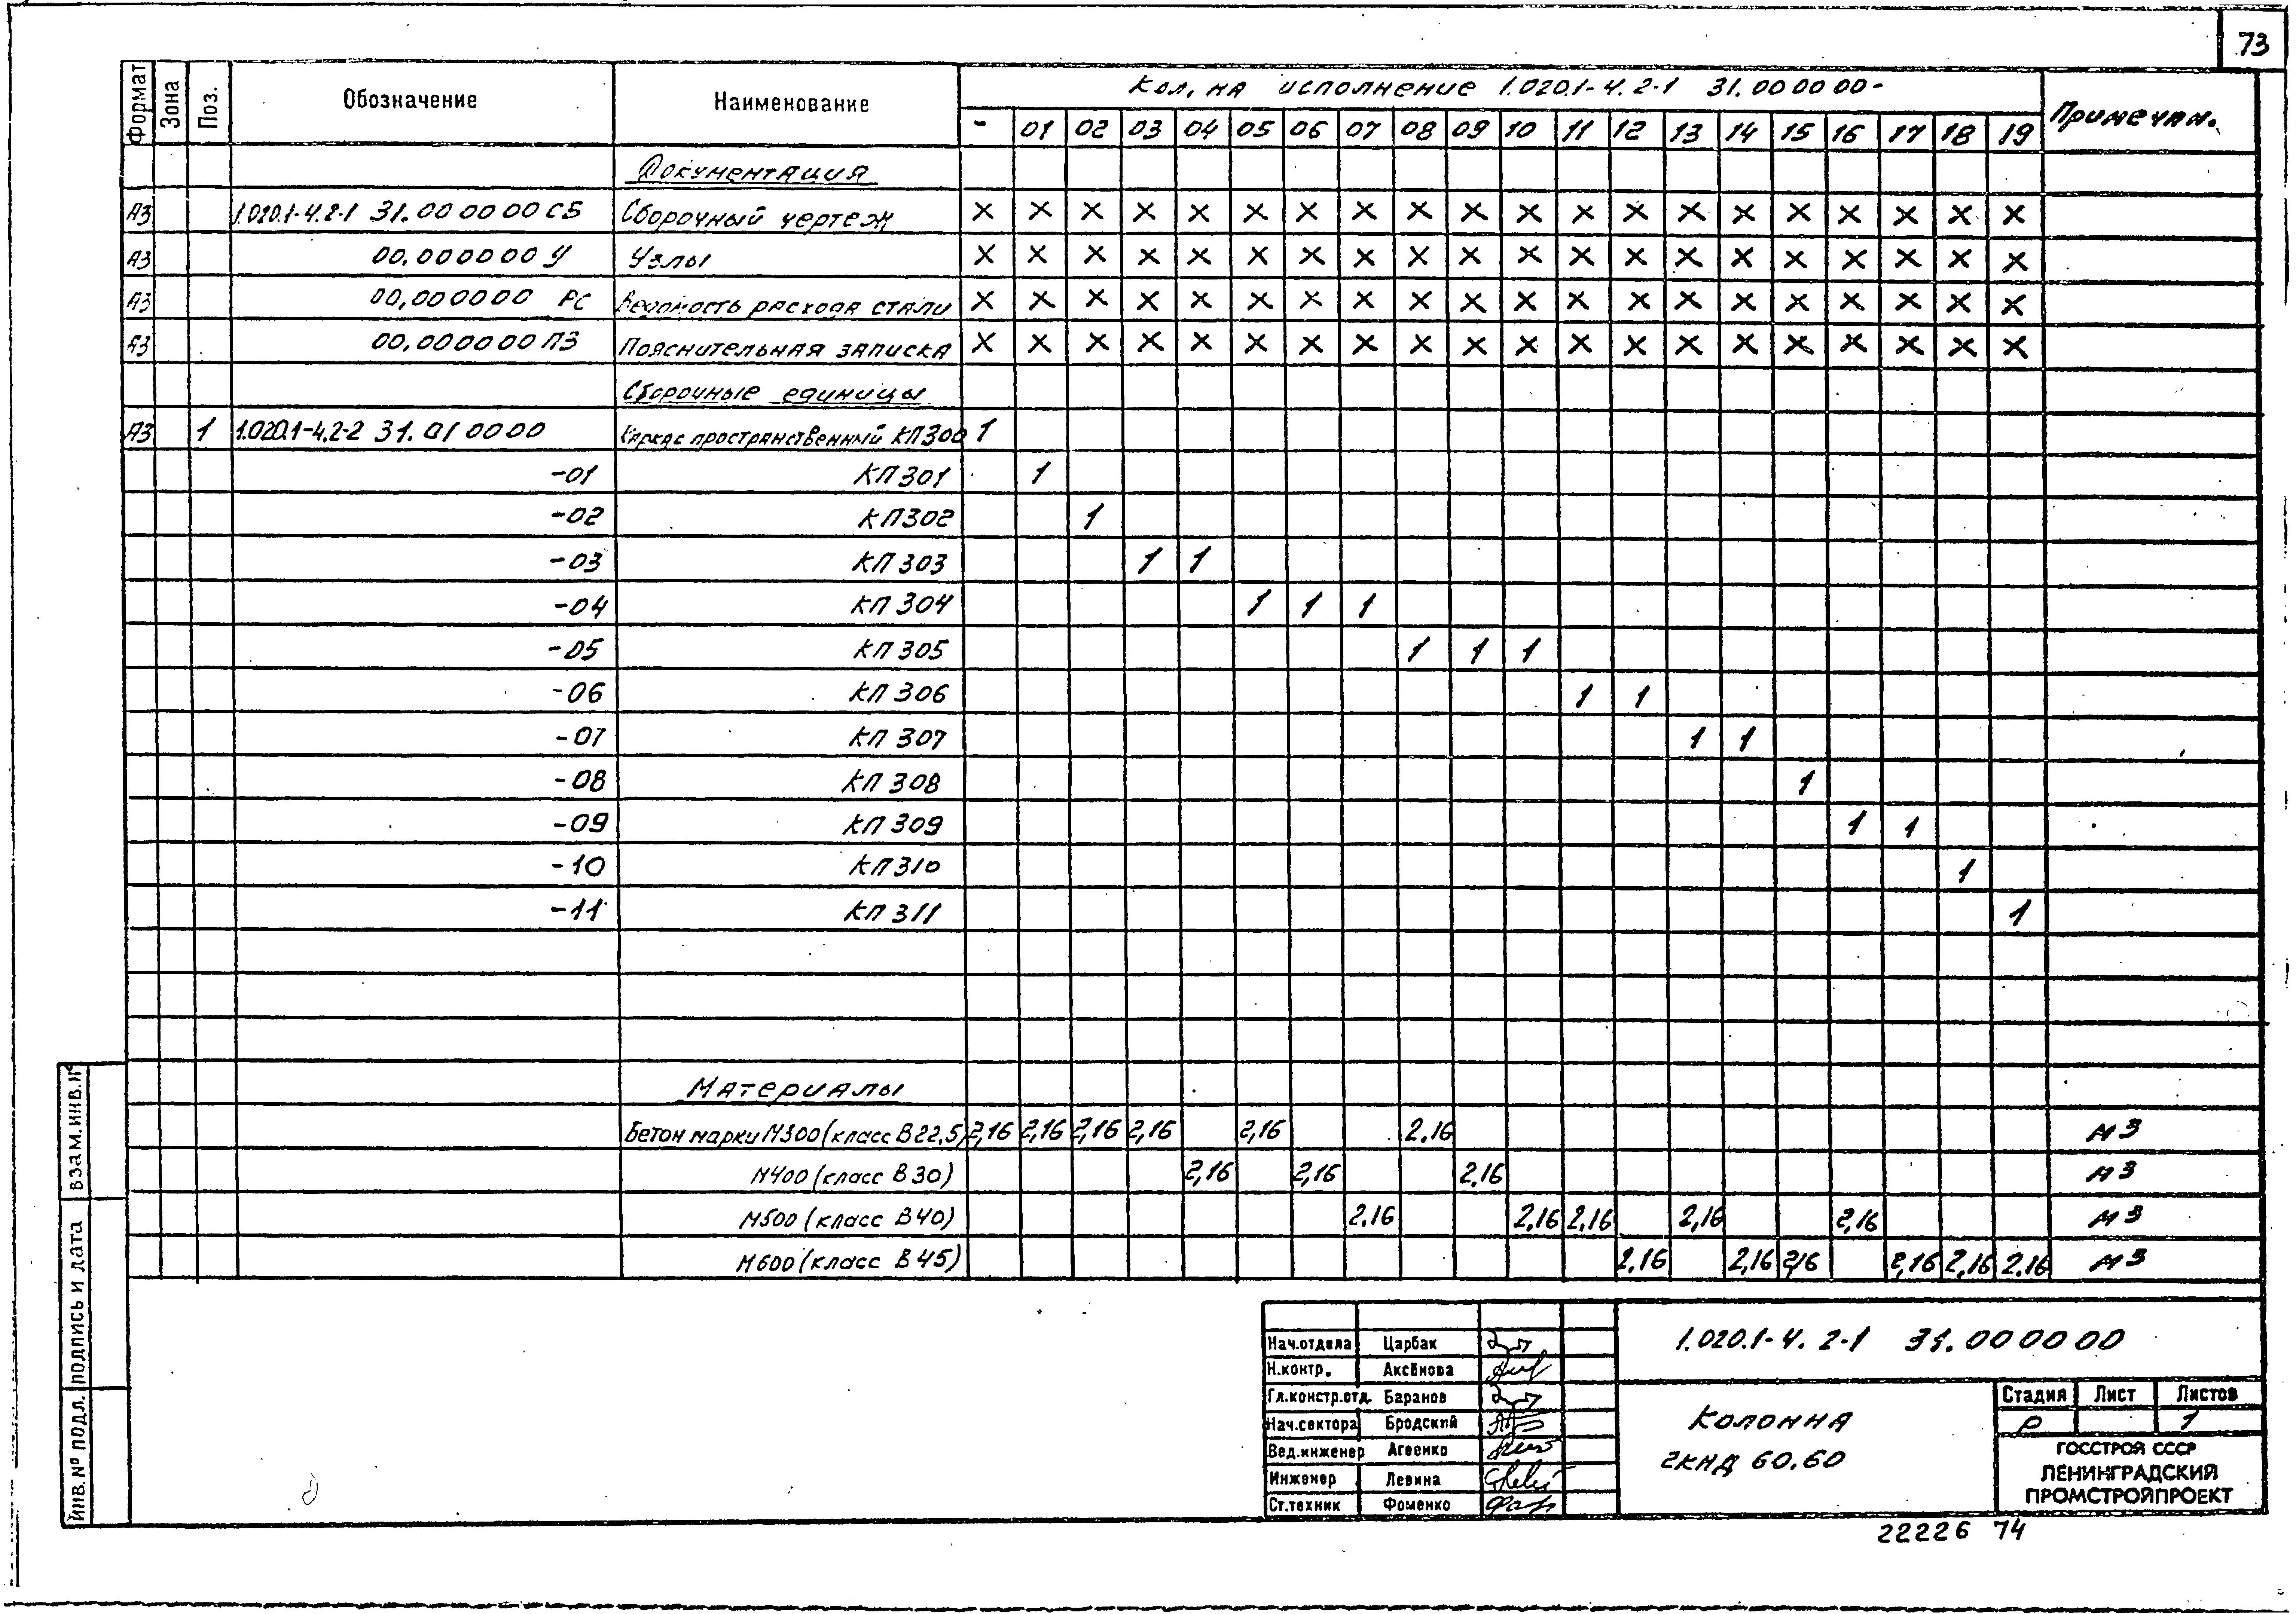 73
Формат Зона Поз. Обозначение Наименование Кол. на исполнение 1.020.1-4.2-1 31.00 00 00- Примечан.
- 01 02 03 04 05 06 07 08 09 10 11 12 13 14 15 16 17 18 19
Документация
А3 1.020.1-4.2-1 31.00 00 00 СБ Сборочный чертеж × × × × × × × × × × × × × × × × × × × ×
А3 00.000000 У Узлы × × × × × × × × × × × × × × × × × × × ×
А3 00.000000 РС Ведомость расхода стали × × × × × × × × × × × × × × × × × × × ×
А3 00.000000 ПЗ Пояснительная записка × × × × × × × × × × × × × × × × × × × ×
Сборочные единицы
А3 1 1.020.1-4.2-2 31.01 00 00 Каркас пространственный КП300 1
-01 КП301 1
-02 КП302 1
-03 КП 303 1 1
-04 КП 304 1 1 1
-05 КП 305 1 1 1
-06 КП 306 1 1
-07 КП 307 1 1
-08 КП 308 1
-09 КП 309 1 1
-10 КП310 1
-11 КП 311 1
Материалы
Бетон марки М300 (класс В22,5) 2,16 2,16 2,16 2,16 2,16 2.16 м3
М400 (класс В30) 2,16 2,16 2.16 м3
М500 (класс В40) 2.16 2.16 2.16 2,16 2,16 м3
М600 (класс В45) 2.16 2,16 2,16 2,16 2,16 2.16 м3
ИНВ.№ ПОДЛ. ПОДПИСЬ И ДАТА ВЗАМ.ИНВ.№
Нач.отдела Царбак
Н.контр. Аксёнова
Гл.констр.отд. Баранов
Нач.сектора Бродский
Вед.инженер Агеенко
Инженер Левина
Ст.техник Фоменко
1.020.1-4. 2-1 31.00 00 00
Колонна
2КНД 60.60
Стадия Лист Листов
Р 1
ГОССТРОЙ СССР
ЛЕНИНГРАДСКИЙ
ПРОМСТРОЙПРОЕКТ
22226 74